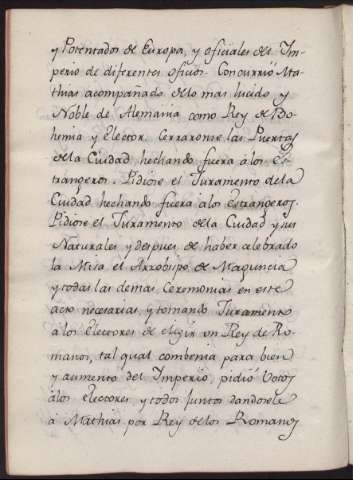 y Potentados de Europa, y oficiales del Im-
perio de diferentes oficios. Concurrió Ma-
thias acompañado delo mas lucido y
Noble de Alemania como Rey de Bo-
hemia y Elector. Cerraronse las Puertas
dela Ciudad hechando fuera álos Es-
trangeros. Pidiose el Juramento dela
Ciudad hechando fuera alos estrangeros.
Pidiose el Juramento dela Ciudad y sus
Naturales y despues de haber celebrado
la Misa el Arzobispo de Maguncia
y todas las demas Ceremonias en este
acto necesarias, y tomando Juramento
álos Electores de elegir un Rey de Ro-
manos, tal qual combenia para bien
y aumento del Imperio, pidió Votos
álos Electores, y todos juntos dandosele
á Mathias por Rey delos Romanos